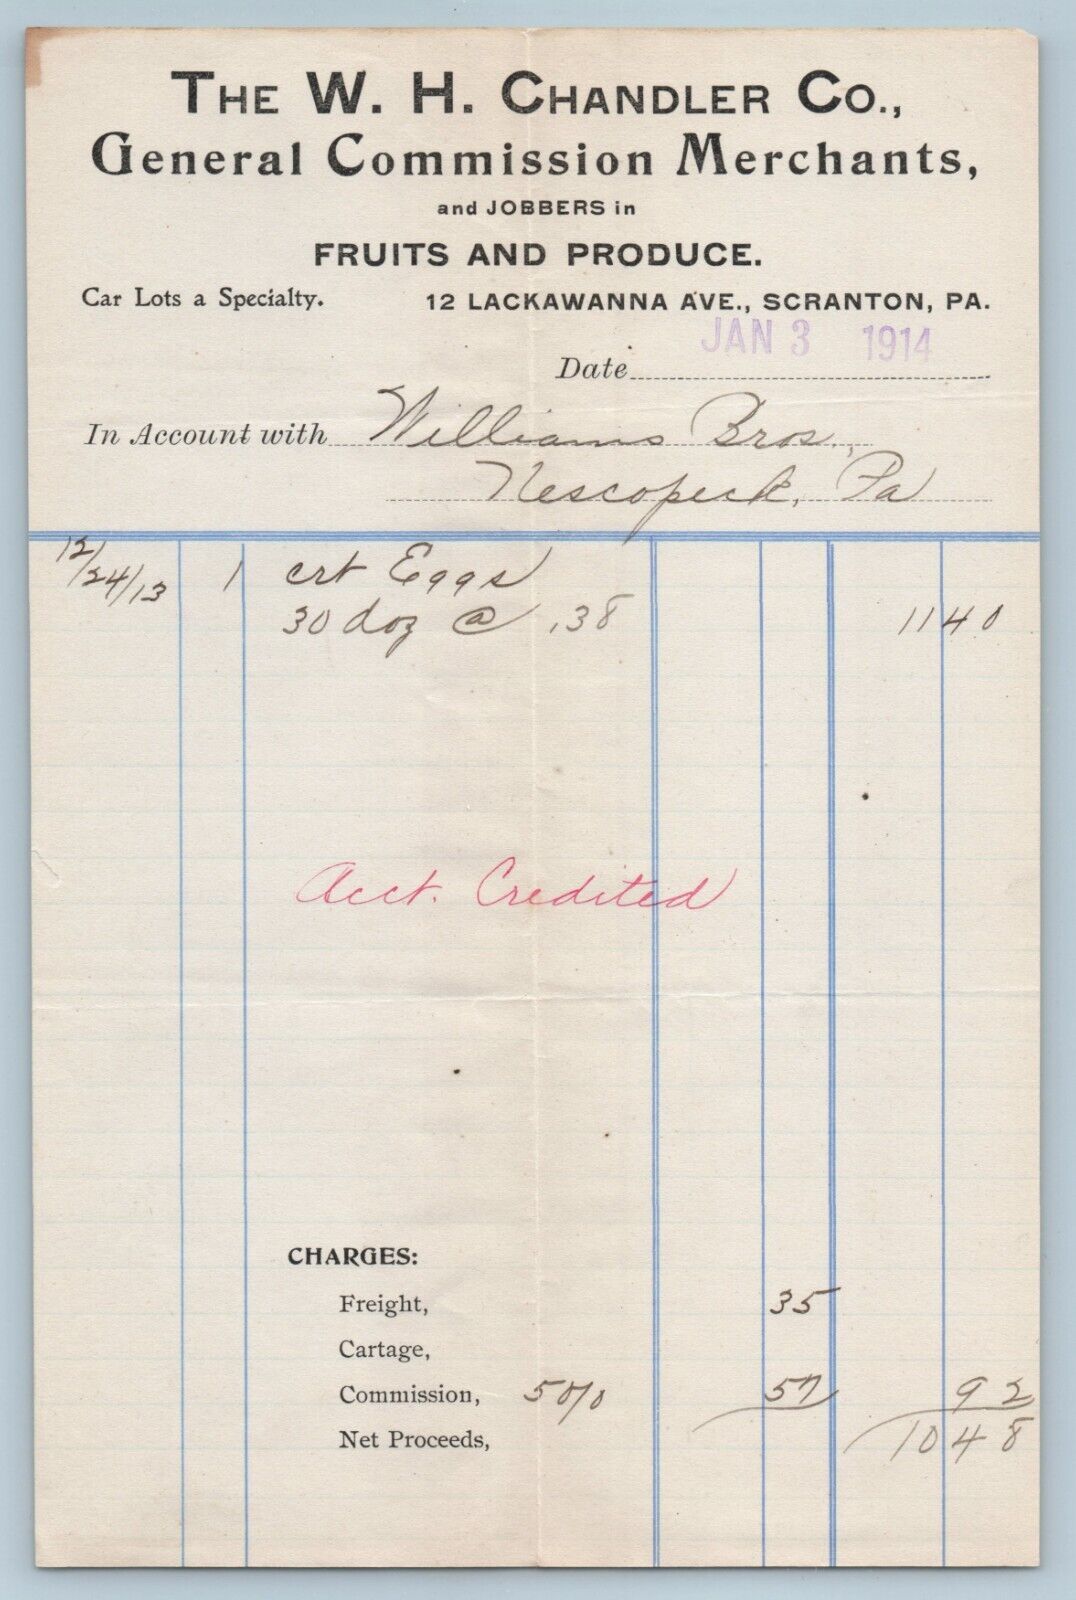 THE W. H. CHANDLER CO.,
General Commission Merchants,
and JOBBERS in
FRUITS AND PRODUCE.
Car Lots a Specialty. 12 LACKAWANNA AVE., SCRANTON, PA.
JAN 3 1914
Date
In Account with Williams Bros.,
Nescopeck, Pa
12/24/13 1 crt Eggs
30 doz @ .38 11 40
Acct. Credited
CHARGES:
Freight, 35
Cartage,
Commission, 5% 57 92
Net Proceeds, 10 48